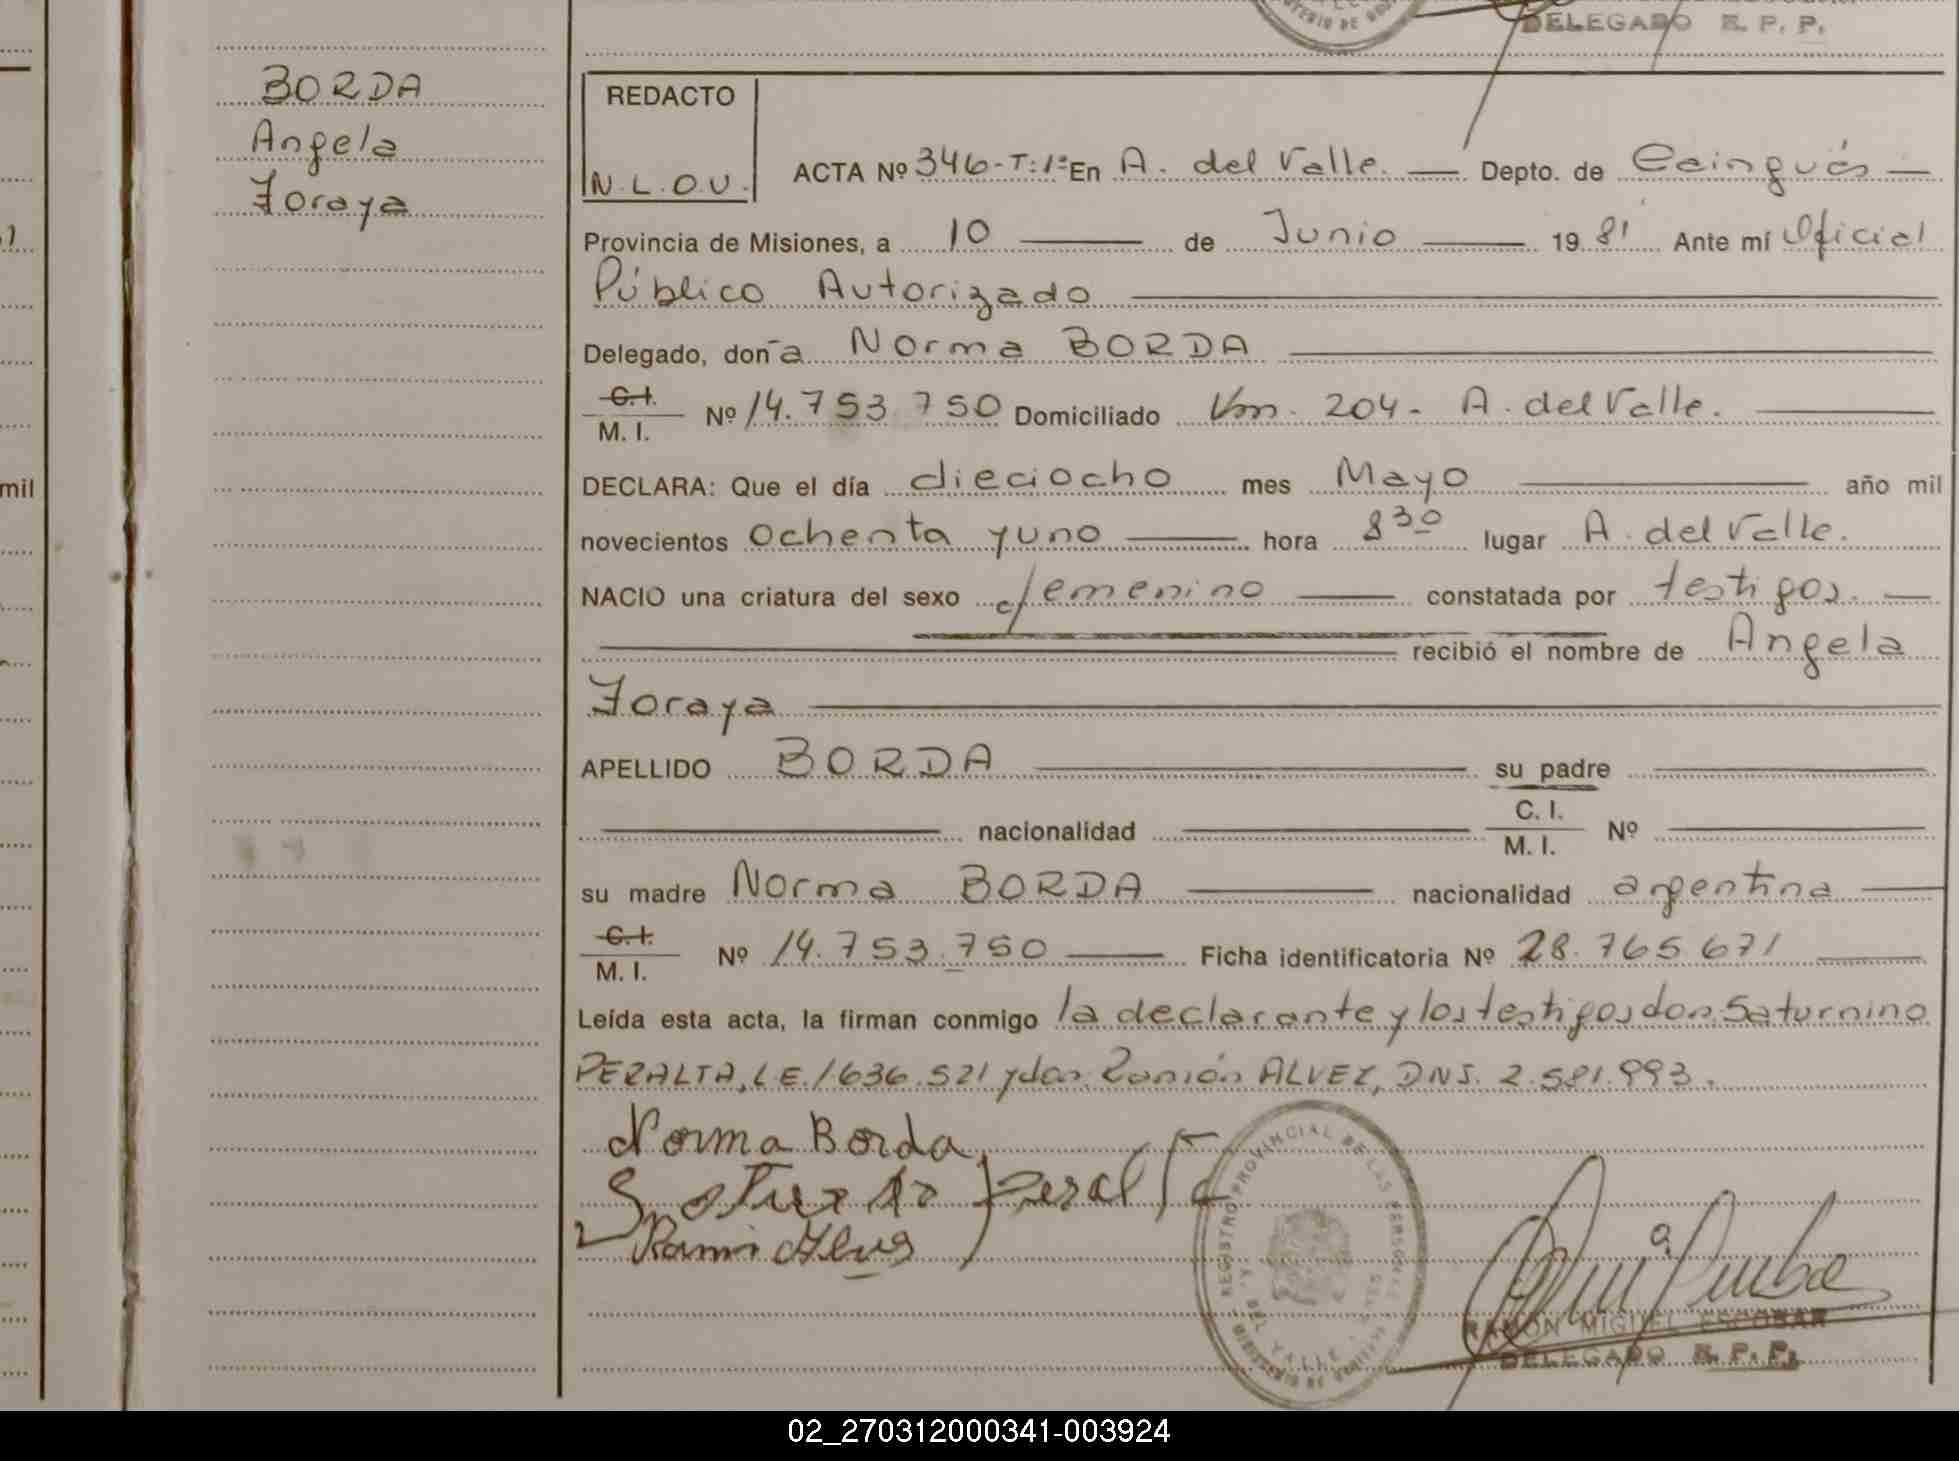 DELEGADO R. P. P.
BORDA
Angela
Zoraya
REDACTO
N.L.O.U.
ACTA Nº 346-T:1º En A. del Valle. Depto. de Caingués
Provincia de Misiones, a 10 de Junio 1981 Ante mí Oficial
Público Autorizado
Delegado, doña Norma BORDA
C.I.
M. I. Nº 14.753.750 Domiciliado Km. 204- A. del Valle.
DECLARA: Que el día dieciocho mes Mayo año mil
novecientos ochenta y uno hora 8 30 lugar A. del Valle.
NACIO una criatura del sexo femenino constatada por testigos.
recibió el nombre de Angela
Zoraya
APELLIDO BORDA su padre
nacionalidad C. I.
M. I. Nº
su madre Norma BORDA nacionalidad argentina
C.I.
M. I. Nº 14.753.750 Ficha identificatoria Nº 28.765.671
Leída esta acta, la firman conmigo la declarante y los testigos don Saturnino
PERALTA, L.E. 1636.521 y don Ramón ALVEZ, DNI. 2.581.993.
Norma Borda
Peralta
REGISTRO PROVINCIAL DE LAS PERSONAS
DEL VALLE
RAMON MIGUEL ESCOBAR
DELEGADO R. P. P.
mil
02_270312000341-003924